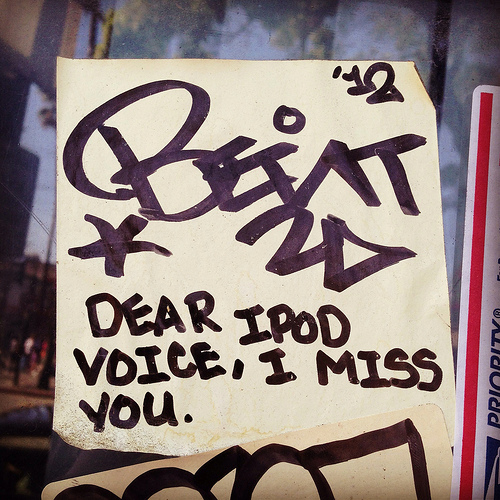 '12
BEIAT
20
DEAR IPOD
VOICE, I MISS
YOU.
PRIORITY®